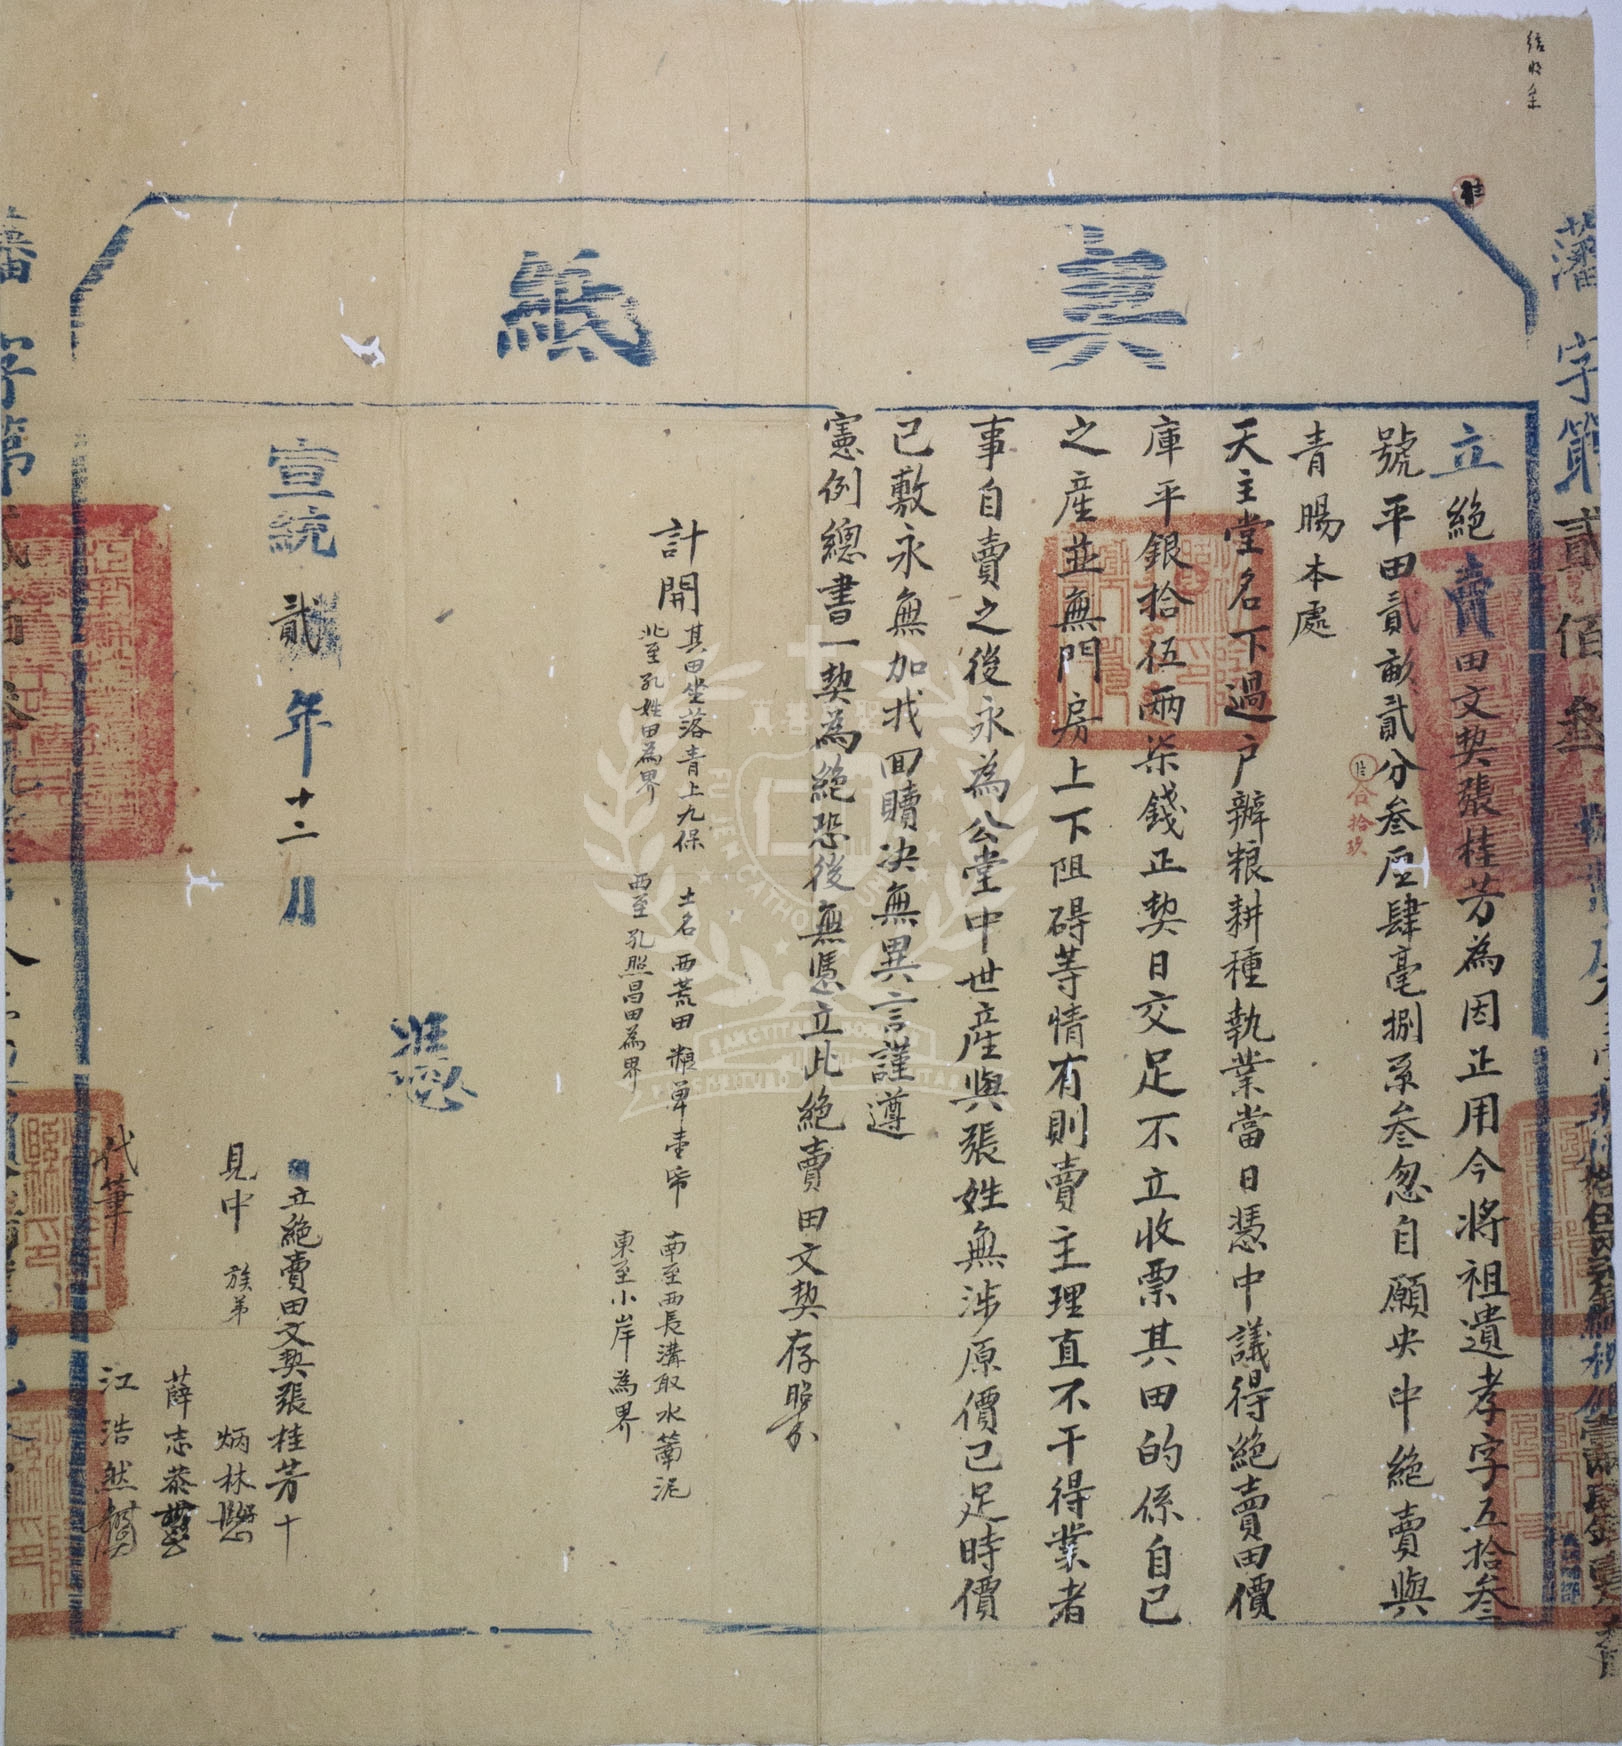 藩字第貳佰叁
真紙
立絕賣田文契張桂芳為因正用今將祖遺孝字五拾叁
號平田貳畝貳分叁厘肆毫捌系叁忽自願央中絕賣與
青賜本處
天主堂名下過户辦粮耕種執業當日憑中議得絕賣田價
庫平銀拾伍兩柒錢正契日交足不立收票其田的係自己
之産並無門房上下阻碍等情有則賣主理直不干得業者
事自賣之後永為公堂中世産與張姓無涉原價已足時價
已敷永無加找回贖决無異言謹遵
憲例總書一契為絕恐後無憑立此絕賣田文契存照
合拾玖
計開
其田坐落青上九保 土名西荒田 南至西長溝取水罱泥
北至孔姓田為界 西至孔照昌田為界 東至小岸為界
憑
宣統貳年十二月
立絕賣田文契張桂芳十
見中 族弟 炳林
薛志恭
代筆 江浩然
FU JEN CATHOLIC UNIVERSITY